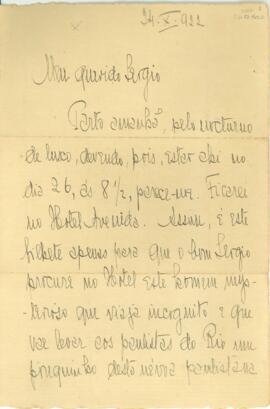 24-X-922
Meu querido Sergio
Parto amanhã, pelo nocturno
de luxo, devendo, pois, estar ahi no
dia 26, ás 8 1/2, parece-me. Ficarei
no Hotel Avenida. Assim, é este
bilhete apenas para que o bom Sergio
procure no Hotel este homem mys-
terioso que viaja incognito e que
vae levar aos paulistas do Rio um
pouquinho desta nevoa paulistana